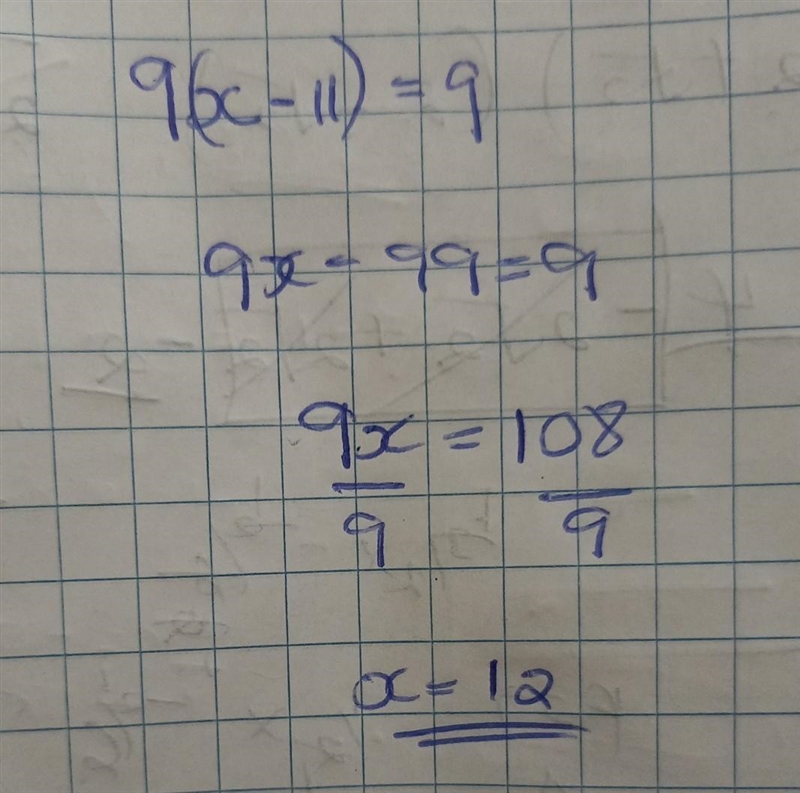 9(x - 11) = 9
9x - 99 = 9
9x/9 = 108/9
x = 12